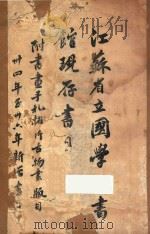 江蘇省立國學 書
館現存書目
附書畫手札拓片古物書版目
卅四年至卅六年新